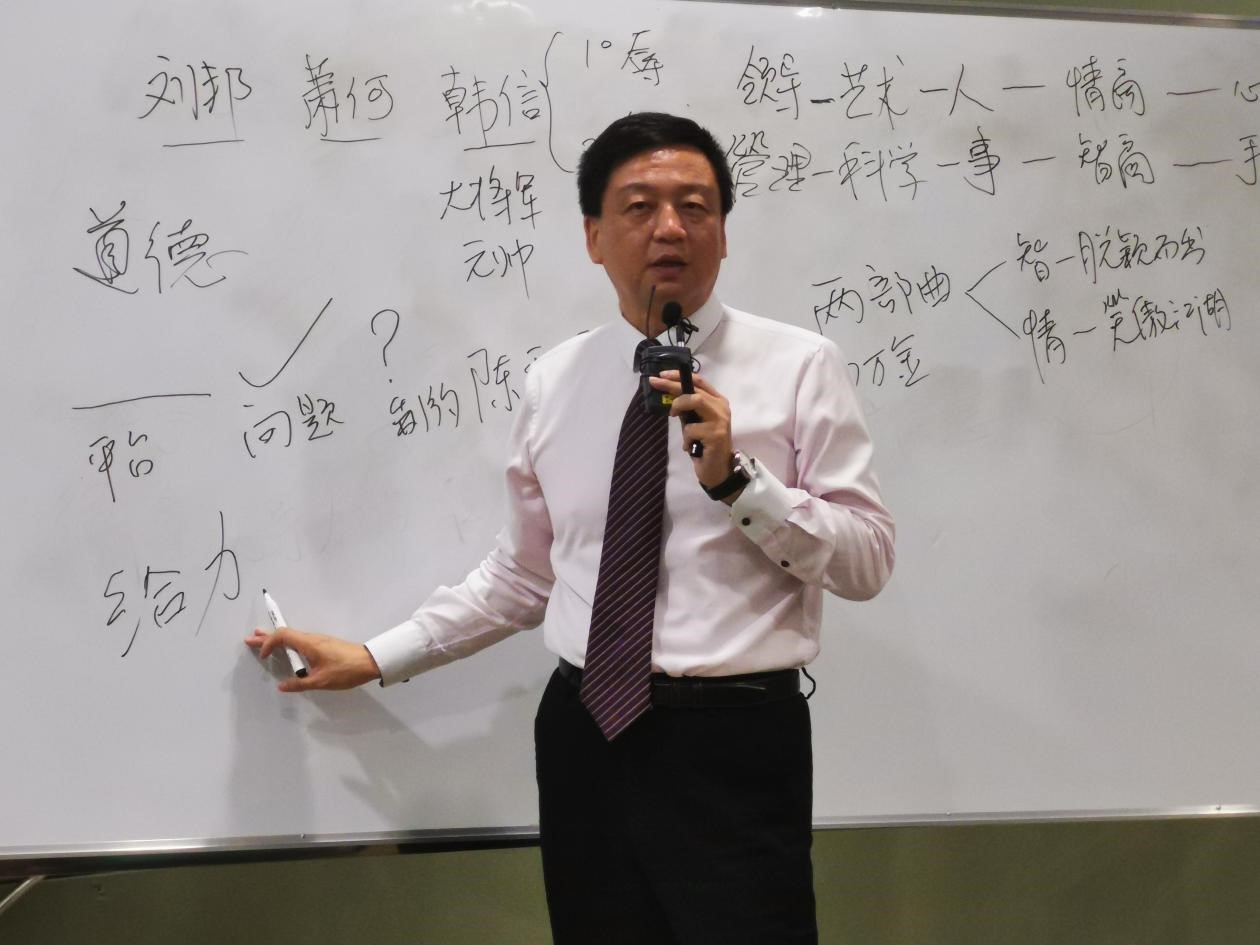 刘邦 萧何 韩信 1° 辱
领导—艺术—人—情商—心
管理—科学—事—智商—手
大将军
元帅
道德
两部曲
智—脱颖而出
情—笑傲江湖
?
问题 陈
万金
平台
给力